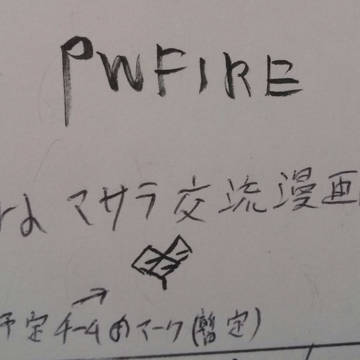 PWFIRE
マサラ交流漫画
予定チームのマーク(暫定)